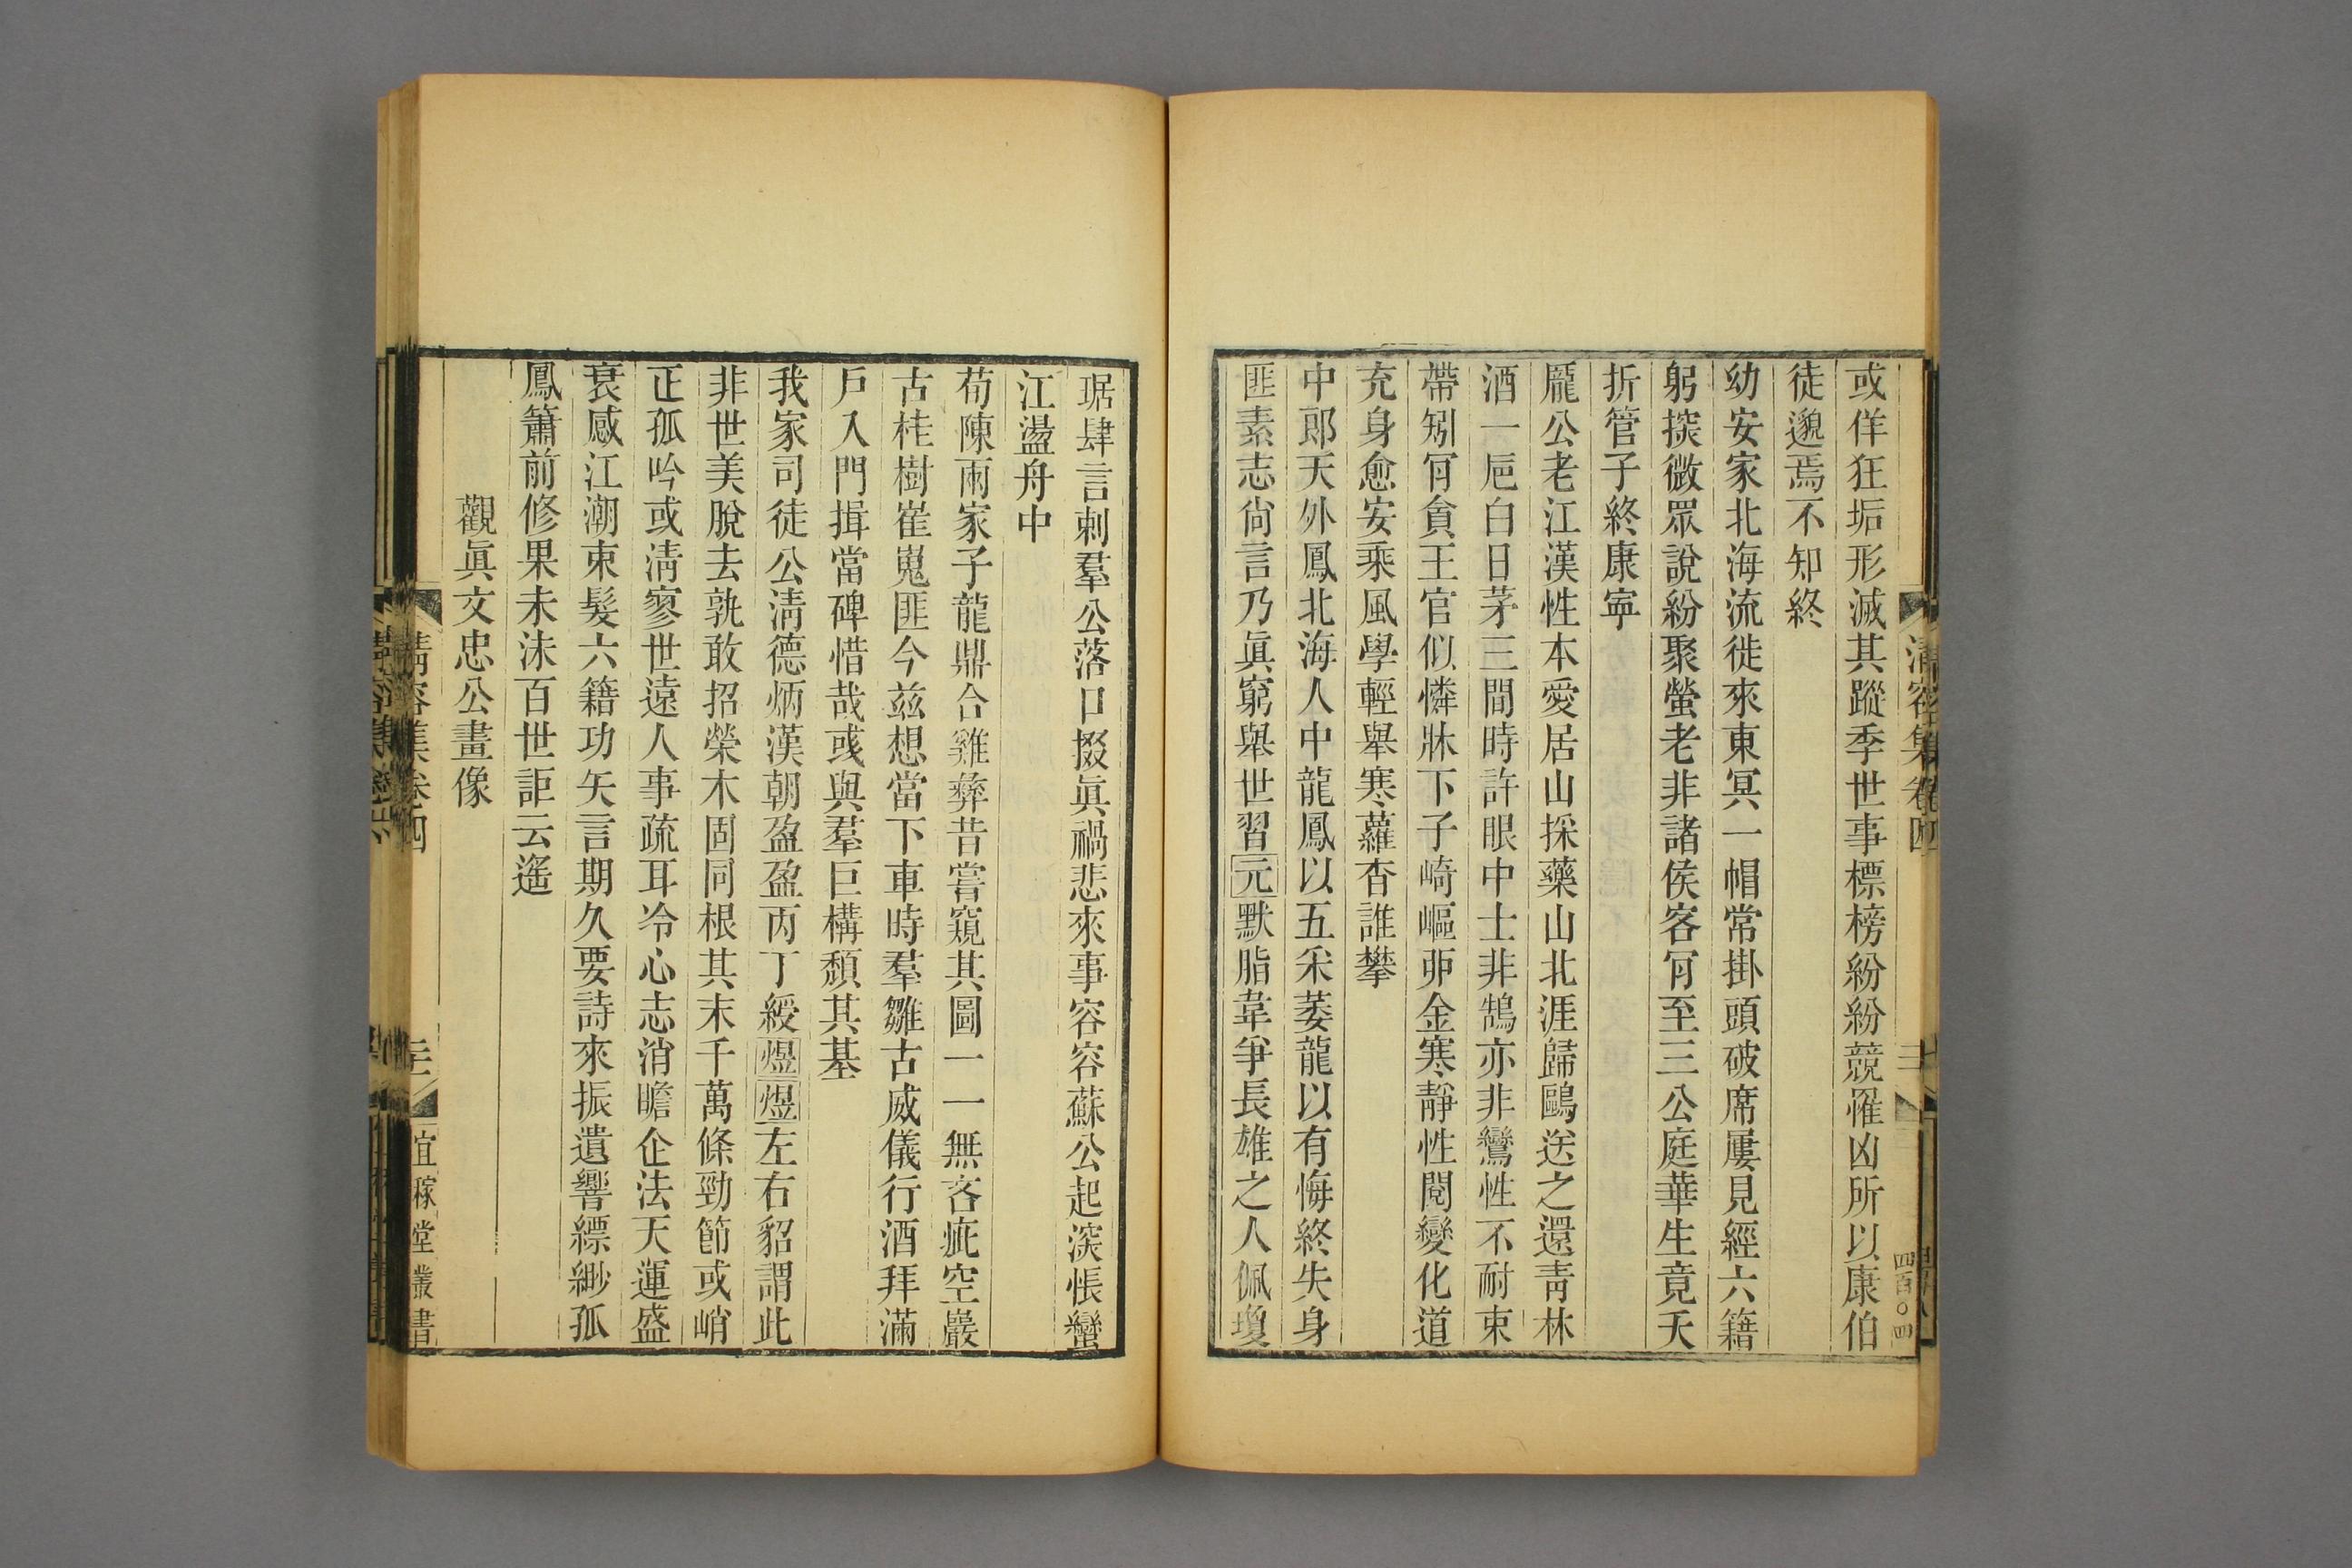 或佯狂垢形滅其蹤季世事標榜紛紛競罹凶所以康伯
徒邈焉不知終
幼安家北海流徙來東冥一帽常掛頭破席屢見經六籍
躬探微眾說紛聚螢老非諸侯客肎至三公庭華生竟夭
折管子終康寧
龎公老江漢性本愛居山採藥山北涯歸鷗送之還靑林
酒一巵白日茅三間時許眼中士非鵠亦非鸞性不耐束
帶矧肎貪王官似憐牀下子崎嶇卯金寒靜性閱變化道
充身愈安乘風學輕舉寒蘿杳誰攀
中郎天外鳳北海人中龍鳳以五采萎龍以有悔終失身
匪素志尙言乃眞窮舉世習元默脂韋爭長雄之人佩瓊
琚肆言刺羣公落口掇眞禍悲來事容容蘇公起深悵蠻
江盪舟中
荀陳兩家子龍鼎合雞彝昔嘗窺其圖一一無吝疵空巖
古桂樹崔嵬匪今兹想當下車時羣雛古威儀行酒拜滿
戶入門揖當碑惜哉彧與羣巨構頽其基
我家司徒公淸德炳漢朝盈盈丙丁綬煜煜左右貂謂此
非世美脫去孰敢招榮木固同根其末千萬條勁節或峭
正孤吟或淸寥世遠人事疏耳冷心志消瞻企法天運盛
衰感江潮束髮六籍功矢言期久要詩來振遺響縹緲孤
鳳簫前修果未沬百世詎云遙
觀眞文忠公畫像
淸容集卷四
宜稼堂叢書